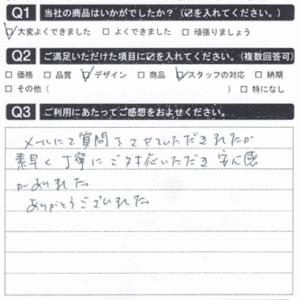 Q1 当社の商品はいかがでしたか？（☑を入れてください。）
☑大変よくできました □よくできました □頑張りましょう
Q2 ご満足いただけた項目に☑を入れてください。（複数回答可）
□価格 □品質 ☑デザイン □商品 ☑スタッフの対応 □納期
□その他（ ） □特になし
Q3 ご利用にあたってご感想をおよせください。
メールにて質問をさせていただきましたが
素早く丁寧にご対応いただき安心感
がありました。
ありがとうございました。